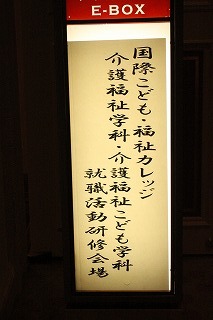 E-BOX
国際こども・福祉カレッジ
介護福祉学科・介護福祉こども学科
就職活動研修会場